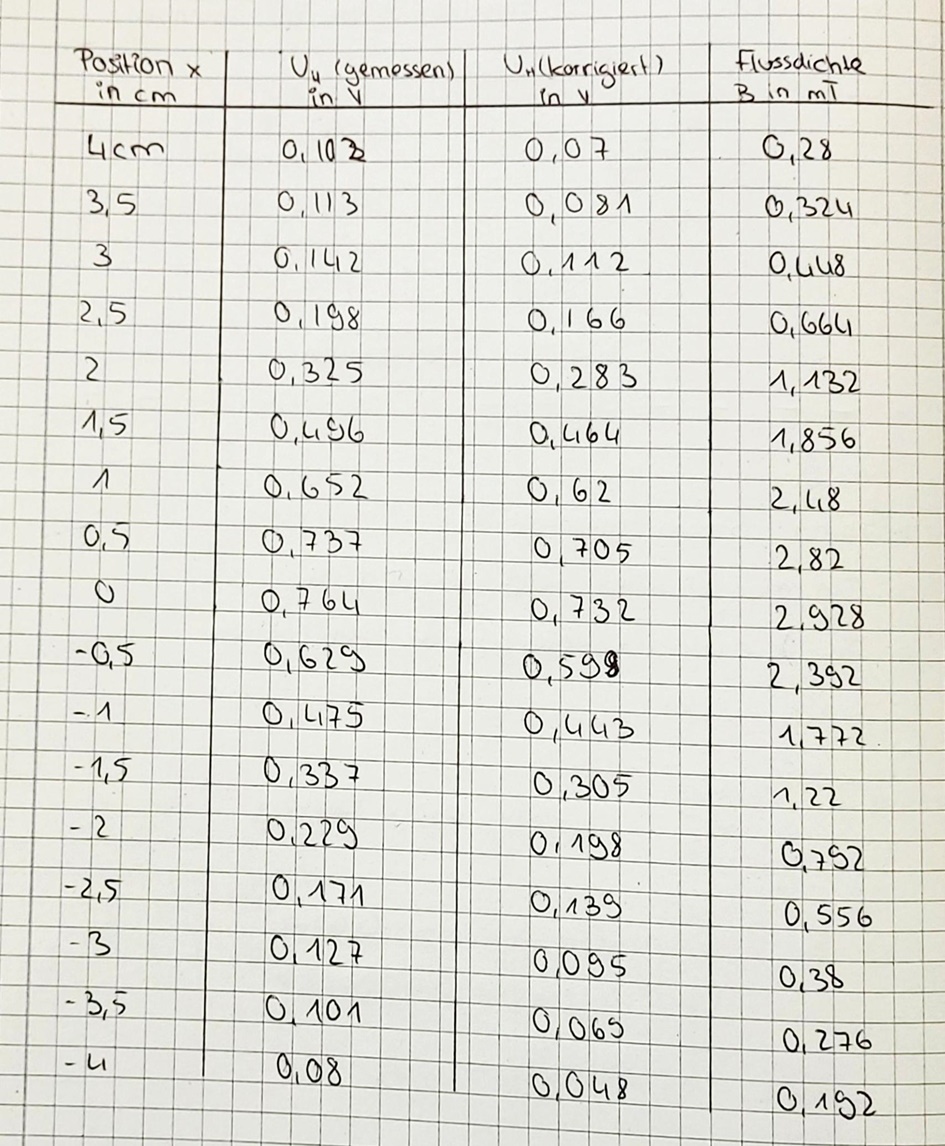 Position x in cm | U_H (gemessen) in V | U_H (korrigiert) in V | Flussdichte B in mT
4cm | 0,102 | 0,07 | 0,28
3,5 | 0,113 | 0,081 | 0,324
3 | 0,142 | 0,112 | 0,448
2,5 | 0,198 | 0,166 | 0,664
2 | 0,325 | 0,283 | 1,132
1,5 | 0,496 | 0,464 | 1,856
1 | 0,652 | 0,62 | 2,48
0,5 | 0,737 | 0,705 | 2,82
0 | 0,764 | 0,732 | 2,928
-0,5 | 0,629 | 0,598 | 2,392
-1 | 0,475 | 0,443 | 1,772
-1,5 | 0,337 | 0,305 | 1,22
-2 | 0,229 | 0,198 | 0,792
-2,5 | 0,171 | 0,139 | 0,556
-3 | 0,127 | 0,095 | 0,38
-3,5 | 0,101 | 0,069 | 0,276
-4 | 0,08 | 0,048 | 0,192